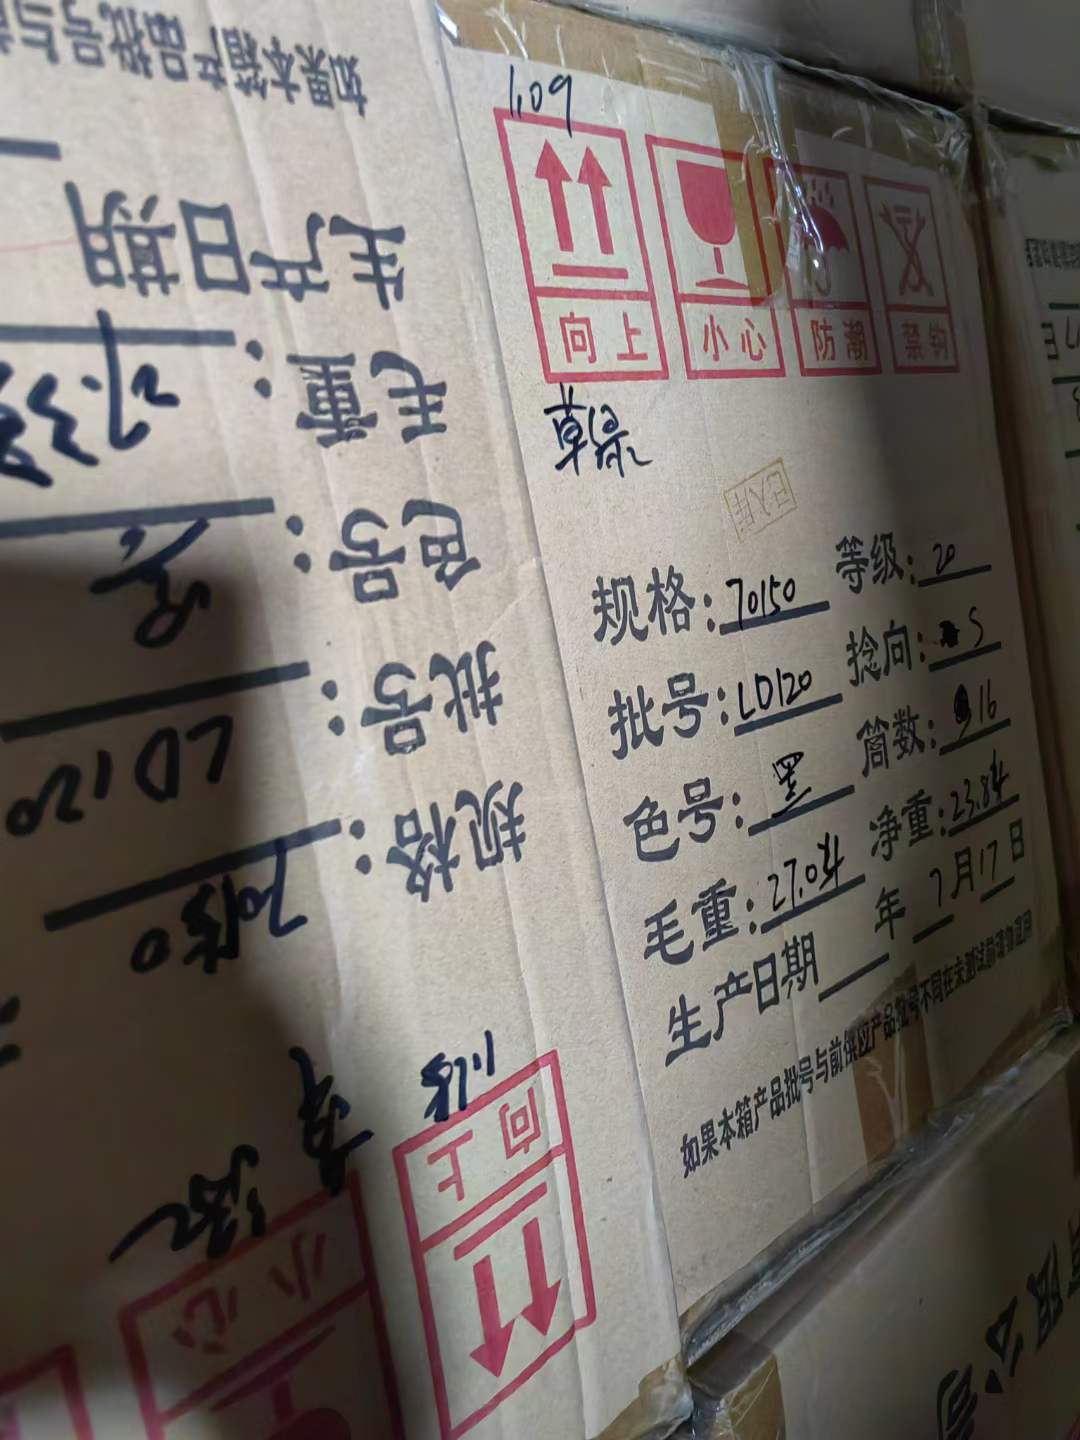 1.09
向上 小心 防潮 禁钩
草绿
已入库
规格：70150 等级：20
批号：LD120 捻向：S
色号：黑 筒数：16
毛重：27.04 净重：23.84
生产日期 年7月17日
如果本箱产品批号与前供应产品批号不同在未测试前请勿混用
向上
小心
规格：70150
批号：LD120
色号：
毛重：
生产日期
如果本箱产品批号与前
有限公司